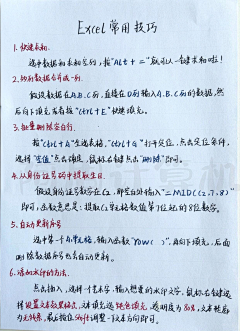 Excel 常用技巧
1. 快速求和.
选中数据和求和空列，按"Alt + ="就可以一键求和啦！
2. 把两列数据合并成一列.
假设数据在A.B.C列，直接在D列输入A.B.C列的数据，然
后向下填充或者按"ctrl+E"快速填充。
3. 批量删除空白行.
按"ctrl+A"全选表格，"ctrl+G"打开定位，点击定位条件，
选择"空值"点击确定，鼠标右键点击"删除"即可。
4. 从身份证号码中提取生日.
假设身份证号数字在C2，那空白处输入"=MID(C2,7,8)"
即可，函数意思是：提取C2单元格数值第7位起的8位数字。
5. 自动更新序号
选中第一个单元格，输入函数"row( )"，再向下填充，后面
删除数据序号也会自动更新。
6. 添加水印的方法.
点击插入，选择艺术字，输入想要的水印文字，鼠标右键选
择设置文本效果格式，文本填充选纯色填充，透明度为80%，文本轮廓
为无线条，最后按住shift调整一下文本方向即可。